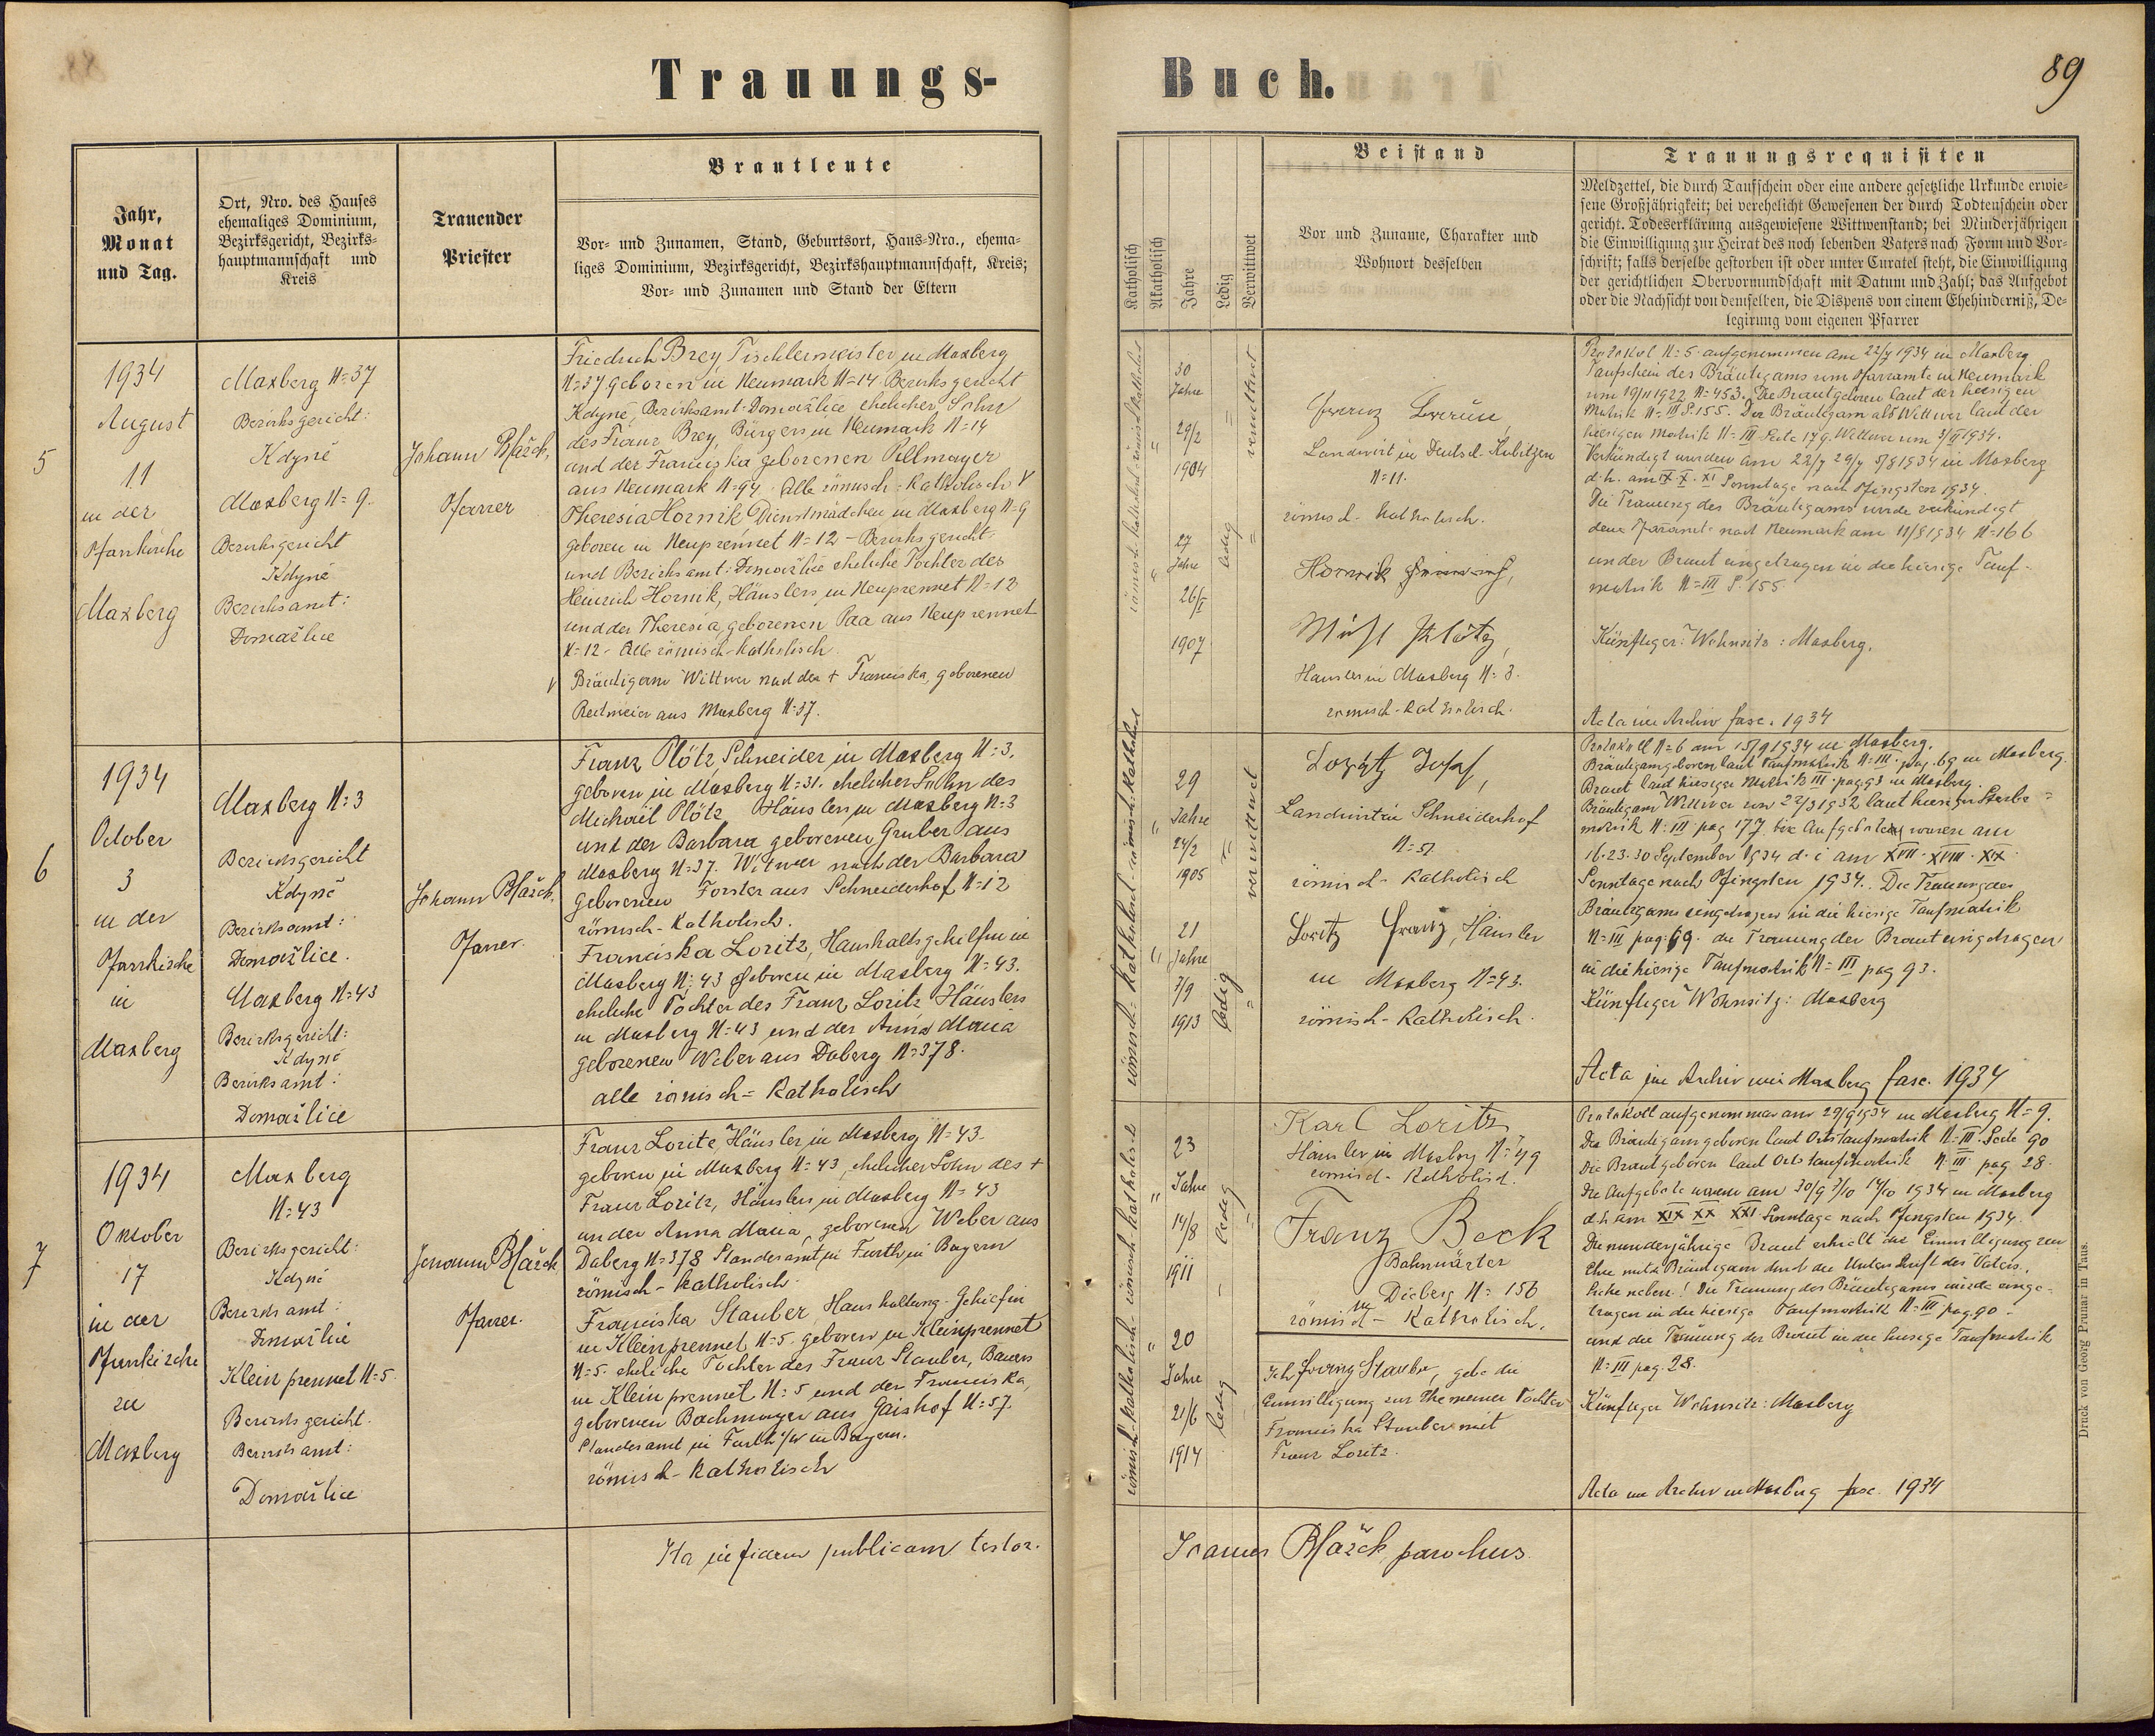 Trauungs-
Jahr,
Monat
und Tag.
Ort, Nro. des Hauses
ehemaliges Dominium,
Bezirksgericht, Bezirks-
hauptmannschaft und
Kreis
Trauender
Priester
Brautleute
Vor- und Zunamen, Stand, Geburtsort, Haus-Nro., ehema-
liges Dominium, Bezirksgericht, Bezirkshauptmannschaft, Kreis;
Vor- und Zunamen und Stand der Eltern
5
1934
August
11
in der
Pfarrkirche
Maxberg
Maxberg N=37
Bezirksgericht:
Kdyně
Maxberg N=9.
Bezirksgericht
Kdyně
Bezirksamt:
Domažlice
Johann Blažek,
Pfarrer
Friedrich Brey Tischlermeister in Maxberg
N=37 geboren in Neumark N=14 Bezirksgericht
Kdyně, Bezirksamt-Domažlice, ehelicher Sohn
des Franz Brey, Bürgers in Neumark N=14
und der Franciska geborenen Pellmayer
aus Neumark N=94. Alle römisch-katholisch V
Theresia Hornik Dienstmädchen in Maxberg N=9
geboren in Neuprennet N=12 - Bezirksgericht
und Bezirksamt: Domažlice eheliche Tochter des
Heinrich Hornik, Häuslers in Neuprennet N=12
und der Theresia, geborenen Paa aus Neuprennet
N=12 - Alle römisch-katholisch
V Bräutigam Wittwer nach der + Franciska, geborenen
Reitmeier aus Maxberg N=37.
6
1934
October
3
in der
Pfarrkirche
in
Maxberg
Maxberg N=3
Bezirksgericht
Kdyně
Bezirksamt:
Domažlice.
Maxberg N=43
Bezirksgericht:
Kdyně
Bezirksamt:
Domažlice
Johann Blažek,
Pfarrer.
Franz Plötz, Schneider in Maxberg N=3.
geboren in Maxberg N=31. ehelicher Sohn des
Michael Plötz Häuslers in Maxberg N=3
und der Barbara geborenen Gruber aus
Maxberg N=37. Witwer nach der Barbara
geborenen Forster aus Schneiderhof N=12
römisch-katholisch.
Franciska Loritz, Haushaltsgehilfin in
Maxberg N=43 geboren in Maxberg N=43.
eheliche Tochter des Franz Loritz Häuslers
in Maxberg N=43 und der Anna Maria
geborenen Weber aus Daberg N=378.
alle römisch=katholisch
7
1934
Oktober
17
in der
Pfarrkirche
zu
Maxberg
Maxberg
N=43
Bezirksgericht:
Kdyně
Bezirksamt:
Domažlice
Kleinprennet N=5.
Bezirksgericht.
Bezirksamt:
Domažlice
Johann Blažek
Pfarrer.
Franz Loritz, Häusler in Maxberg N=43.
geboren in Maxberg N=43, ehelicher Sohn des +
Franz Loritz, Häuslers in Maxberg N=43
und der Anna Maria, geborenen Weber aus
Daberg N=378 Standesamt in Furth in Bayern
römisch-katholisch.
Franciska Stauber, Haushaltung-Gehilfin
in Kleinprennet N=5. geboren in Kleinprennet
N=5. eheliche Tochter des Franz Stauber, Bauers
in Kleinprennet N=5 und der Franciska,
geborenen Bachmayer aus Gaishof N=57.
Standesamt in Furth i/W in Bayern.
römisch-katholisch
Ita in fidem publicam testor.
Buch.
89
Katholisch
Akatholisch
Jahre
Ledig
Verwittwet
Beistand
Vor und Zuname, Charakter und
Wohnort desselben
Trauungsrequisiten
Meldzettel, die durch Taufschein oder eine andere gesetzliche Urkunde erwie-
sene Großjährigkeit; bei verehelicht Gewesenen der durch Todtenschein oder
gericht. Todeserklärung ausgewiesene Wittwenstand; bei Minderjährigen
die Einwilligung zur Heirat des noch lebenden Vaters nach Form und Vor-
schrift; falls derselbe gestorben ist oder unter Curatel steht, die Einwilligung
der gerichtlichen Obervormundschaft mit Datum und Zahl; das Aufgebot
oder die Nachsicht von demselben, die Dispens von einem Ehehinderniß, De-
legirung vom eigenen Pfarrer
römisch-katholisch römisch katholisch
30
Jahre
29/2
1904
verwittwet
27
Jahre
26/I
1907
ledig
Franz
Landwirt in Deutsch-Kubitzen
N=11.
römisch-katholisch.
Hornik Heinrich,
Michl Plötz,
Häusler in Maxberg N=3.
römisch-katholisch.
Protokol N=5 aufgenommen am 22/7 1934 in Maxberg
Taufschein des Bräutigams vom Pfarramte in Neumark
vom 19/11 1922 N=453. Die Braut geboren laut der hiesigen
Matrik N=III S.155. Der Bräutigam als Wittwer laut der
hiesigen Matrik N=III Seite 179. Wittwer vom 3/II 1934.
Verkündigt wurden am 22/7 29/7 5/8 1934 in Maxberg
d.h. am IX X XI Sonntage nach Pfingsten 1934.
Die Trauung des Bräutigams wurde verkündigt
dem Pfarramte nach Neumark am 11/8 1934 N=166
und der Braut eingetragen in die hiesige Tauf-
matrik N=III S.155.
Künftiger Wohnsitz: Maxberg.
Acta im Archiv fasc. 1934
römisch-katholisch-römisch-katholisch
29
Jahre
24/2
1905
verwittwet
21
Jahre
7/9
1913
ledig
Loritz Josef,
Landwirt in Schneiderhof
N=51
römisch-katholisch
Loritz Franz, Häusler
in Maxberg N=43.
römisch-katholisch.
Protokoll N=6 am 15/9 1934 in Maxberg.
Bräutigam geboren laut Taufmatrik N=III. pag. 69 in Maxberg.
Braut laut hiesiger Matrik III. pag 93 in Maxberg.
Bräutigam Wittwer vom 22/3 1932 laut hiesiger Sterbe=
matrik N=III pag 177. die Aufgeboten waren am
16.23.30 September 1934 d.i am XVII. XVIII. XIX.
Sonntage nach Pfingsten 1934. Die Trauung des
Bräutigams eingetragen in die hiesige Taufmatrik
N=III pag. 69. die Trauung der Braut eingetragen
in die hiesige Taufmatrik N=III pag 93.
Künftiger Wohnsitz: Maxberg
Acta im Archiv Maxberg fasc. 1934
römisch-katholisch-römisch katholisch
23
Jahre
14/8
1911
ledig
20
Jahre
21/6
1914
ledig
Karl Loritz
Häusler in Maxberg N=49
römisch-katholisch.
Franz Beck
Bahnwärter
in Dieberg N=156
römisch-katholisch.
Ich Franz Stauber, gebe die
Einwilligung zur Ehe meiner Tochter
Franciska Stauber mit
Franz Loritz.
Protokoll aufgenommen am 29/9 1934 in Maxberg N=9.
Der Bräutigam geboren laut Ortstaufmatrik N=III. Seite 90
Die Braut geboren laut Ortstaufmatrik N=III pag. 28.
Die Aufgebote waren am 30/9 7/10 14/10 1934 in Maxberg
d.h am XIX XX XXI Sonntage nach Pfingsten 1934.
Die minderjährige Braut erhielt die Einwilligung zur
Ehe mit Bräutigam durch die Unterschrift des Vaters.
Siehe neben! Die Trauung des Bräutigams wurde einge-
tragen in die hiesige Taufmatrik N=III pag. 90-
und die Trauung der Braut in die hiesige Taufmatrik
N=III pag. 28.
Künftiger Wohnsitz: Maxberg
Acta im Archiv in Maxberg fasc. 1934
Joannes Blažek parochus.
Druck von Georg Prunar in Taus.